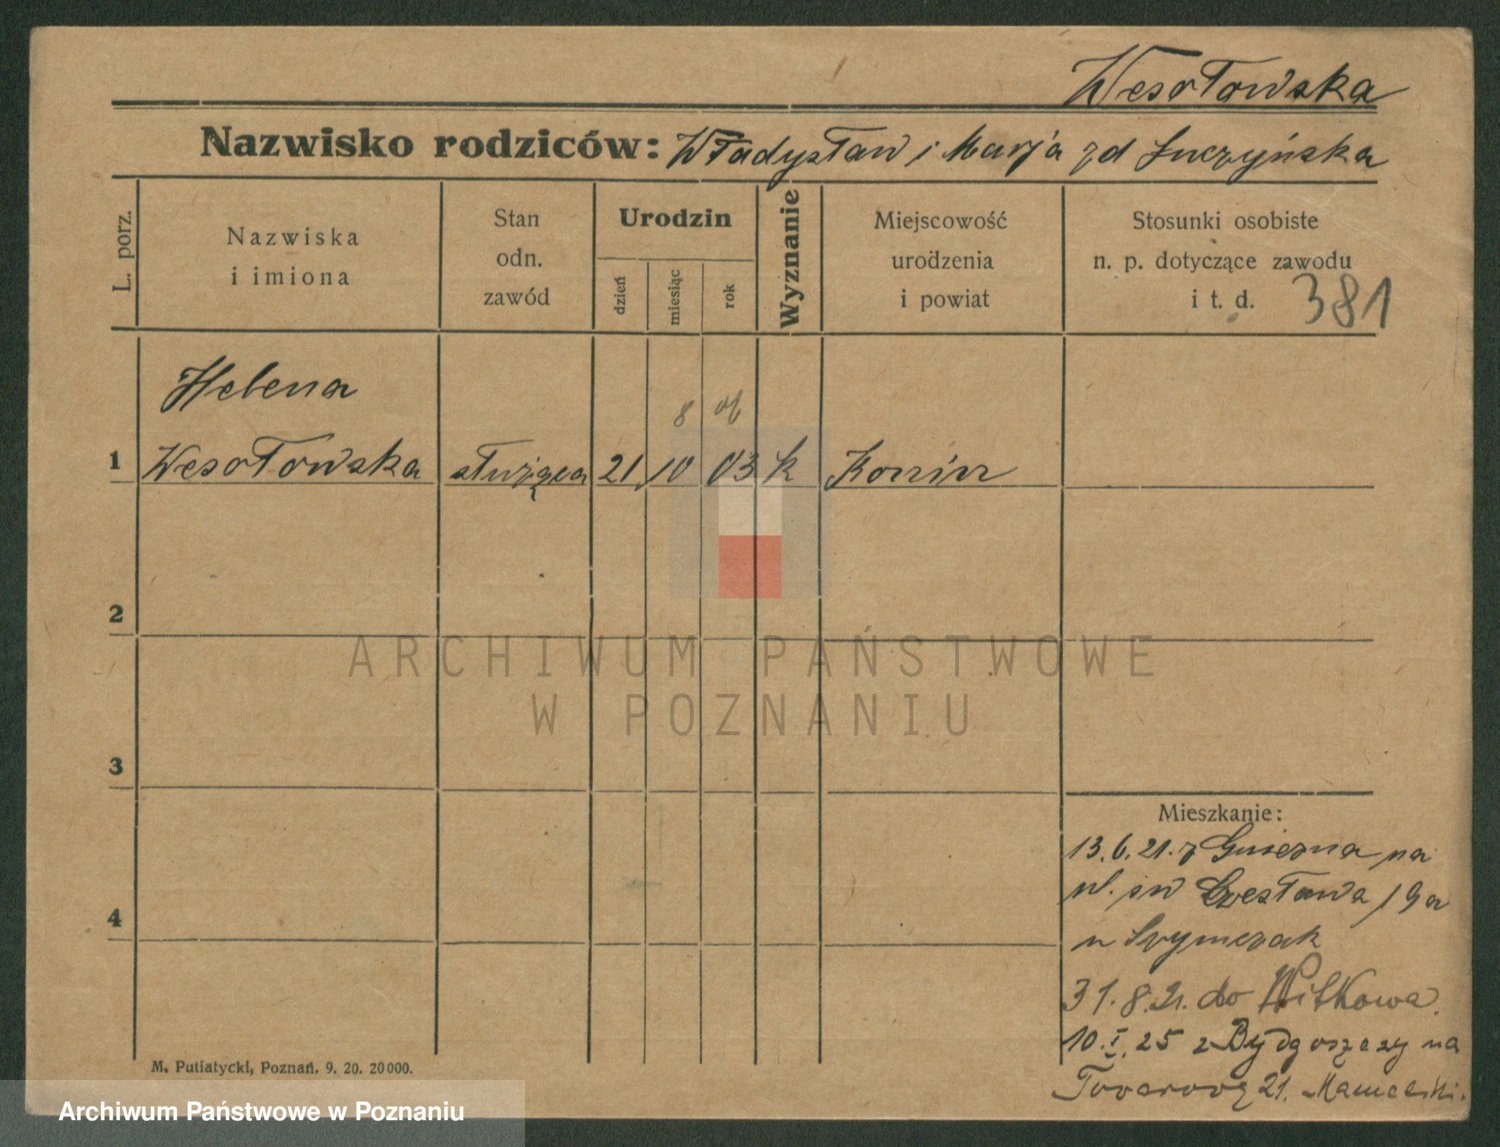 Wesołowska
Nazwisko rodziców: Władysław i Marja zd Łuczyńska
L. porz.
Nazwiska
i imiona
Stan
odn.
zawód
Urodzin
dzień
miesiąc
rok
Wyznanie
Miejscowość
urodzenia
i powiat
Stosunki osobiste
n. p. dotyczące zawodu
i t. d. 381
Helena
8 06
1 Wesołowska służąca 21 10 03 k Konin
2
3
4
ARCHIWUM PAŃSTWOWE
W POZNANIU
Mieszkanie:
13.6.21. z Gniezna na
ul. św Czesława 19a
u Szymczak
31.8.21. do Witkowa.
10.I.25 z Bydgoszczy na
Towarową 21.
M. Putiatycki, Poznań. 9. 20. 20000.
Archiwum Państwowe w Poznaniu